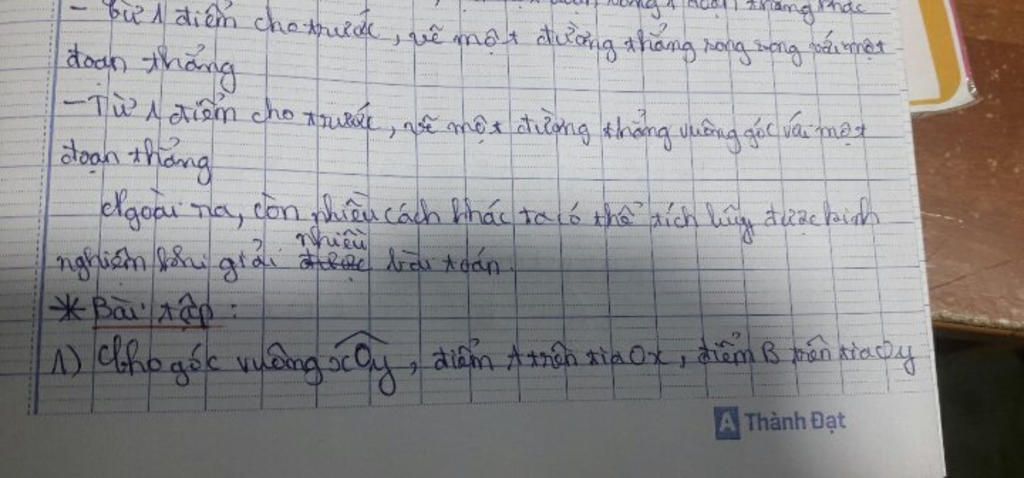 đoạn thẳng khác
- Từ 1 điểm cho trước, vẽ một đường thẳng song song với một
đoạn thẳng
- Từ 1 điểm cho trước, vẽ một đường thẳng vuông góc với một
đoạn thẳng
Ngoài ra, còn nhiều cách khác ta có thể tích lũy được kinh
nghiệm khi giải nhiều bài toán.
* Bài tập:
1) Cho góc vuông xOy, điểm A trên tia Ox, điểm B trên tia Oy
A Thành Đạt